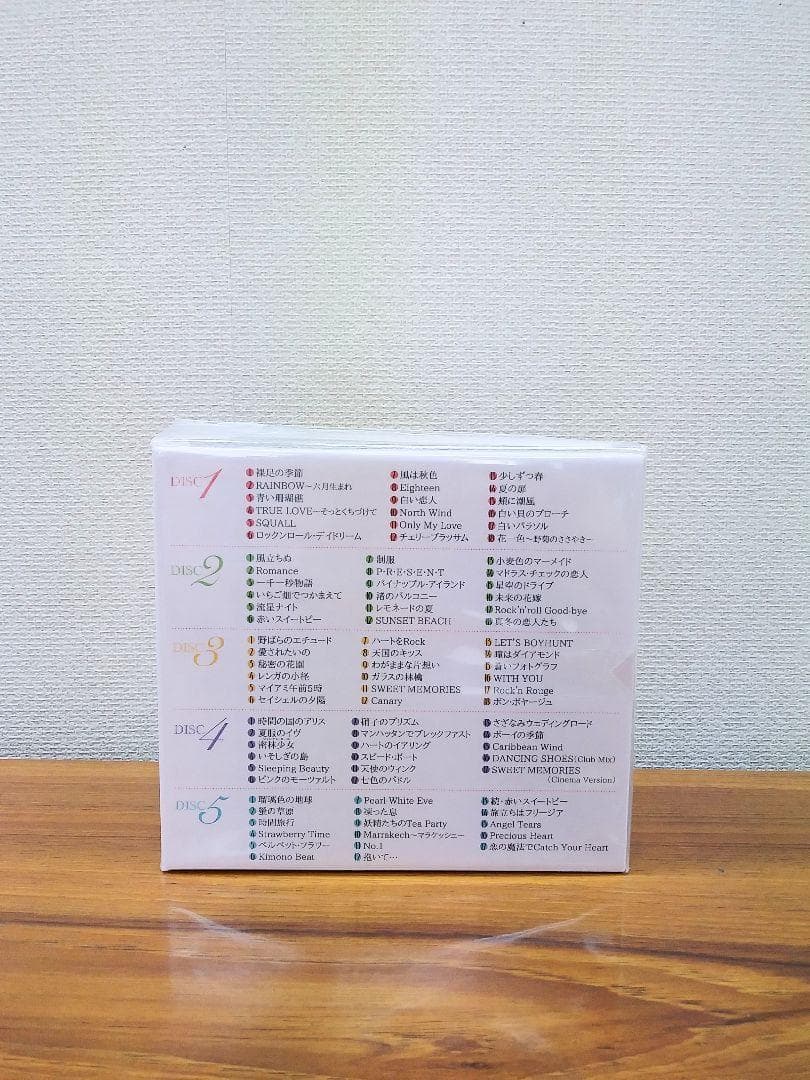 DISC 1
1 裸足の季節
2 RAINBOW〜六月生まれ
3 青い珊瑚礁
4 TRUE LOVE〜そっとくちづけて
5 SQUALL
6 ロックンロール・デイドリーム
7 風は秋色
8 Eighteen
9 白い恋人
10 North Wind
11 Only My Love
12 チェリーブラッサム
13 少しずつ春
14 夏の扉
15 頬に潮風
16 白い貝のブローチ
17 白いパラソル
18 花一色〜野菊のささやき〜
DISC 2
1 風立ちぬ
2 Romance
3 一千一秒物語
4 いちご畑でつかまえて
5 流星ナイト
6 赤いスイートピー
7 制服
8 P・R・E・S・E・N・T
9 パイナップル・アイランド
10 渚のバルコニー
11 レモネードの夏
12 SUNSET BEACH
13 小麦色のマーメイド
14 マドラス・チェックの恋人
15 星空のドライブ
16 未来の花嫁
17 Rock'n'roll Good-bye
18 真冬の恋人たち
DISC 3
1 野ばらのエチュード
2 愛されたいの
3 秘密の花園
4 レンガの小径
5 マイアミ午前5時
6 セイシェルの夕陽
7 ハートをRock
8 天国のキッス
9 わがままな片想い
10 ガラスの林檎
11 SWEET MEMORIES
12 Canary
13 LET'S BOYHUNT
14 瞳はダイアモンド
15 蒼いフォトグラフ
16 WITH YOU
17 Rock'n Rouge
18 ボン・ボヤージュ
DISC 4
1 時間の国のアリス
2 夏服のイヴ
3 密林少女
4 いそしぎの島
5 Sleeping Beauty
6 ピンクのモーツァルト
7 硝子のプリズム
8 マンハッタンでブレックファスト
9 ハートのイアリング
10 スピード・ボート
11 天使のウィンク
12 七色のパドル
13 さざなみウェディングロード
14 ボーイの季節
15 Caribbean Wind
16 DANCING SHOES(Club Mix)
17 SWEET MEMORIES
(Cinema Version)
DISC 5
1 瑠璃色の地球
2 螢の草原
3 時間旅行
4 Strawberry Time
5 ベルベット・フラワー
6 Kimono Beat
7 Pearl-White Eve
8 凍った息
9 妖精たちのTea Party
10 Marrakech〜マラケッシュ〜
11 No.1
12 抱いて…
13 続・赤いスイートピー
14 旅立ちはフリージア
15 Angel Tears
16 Precious Heart
17 恋の魔法でCatch Your Heart